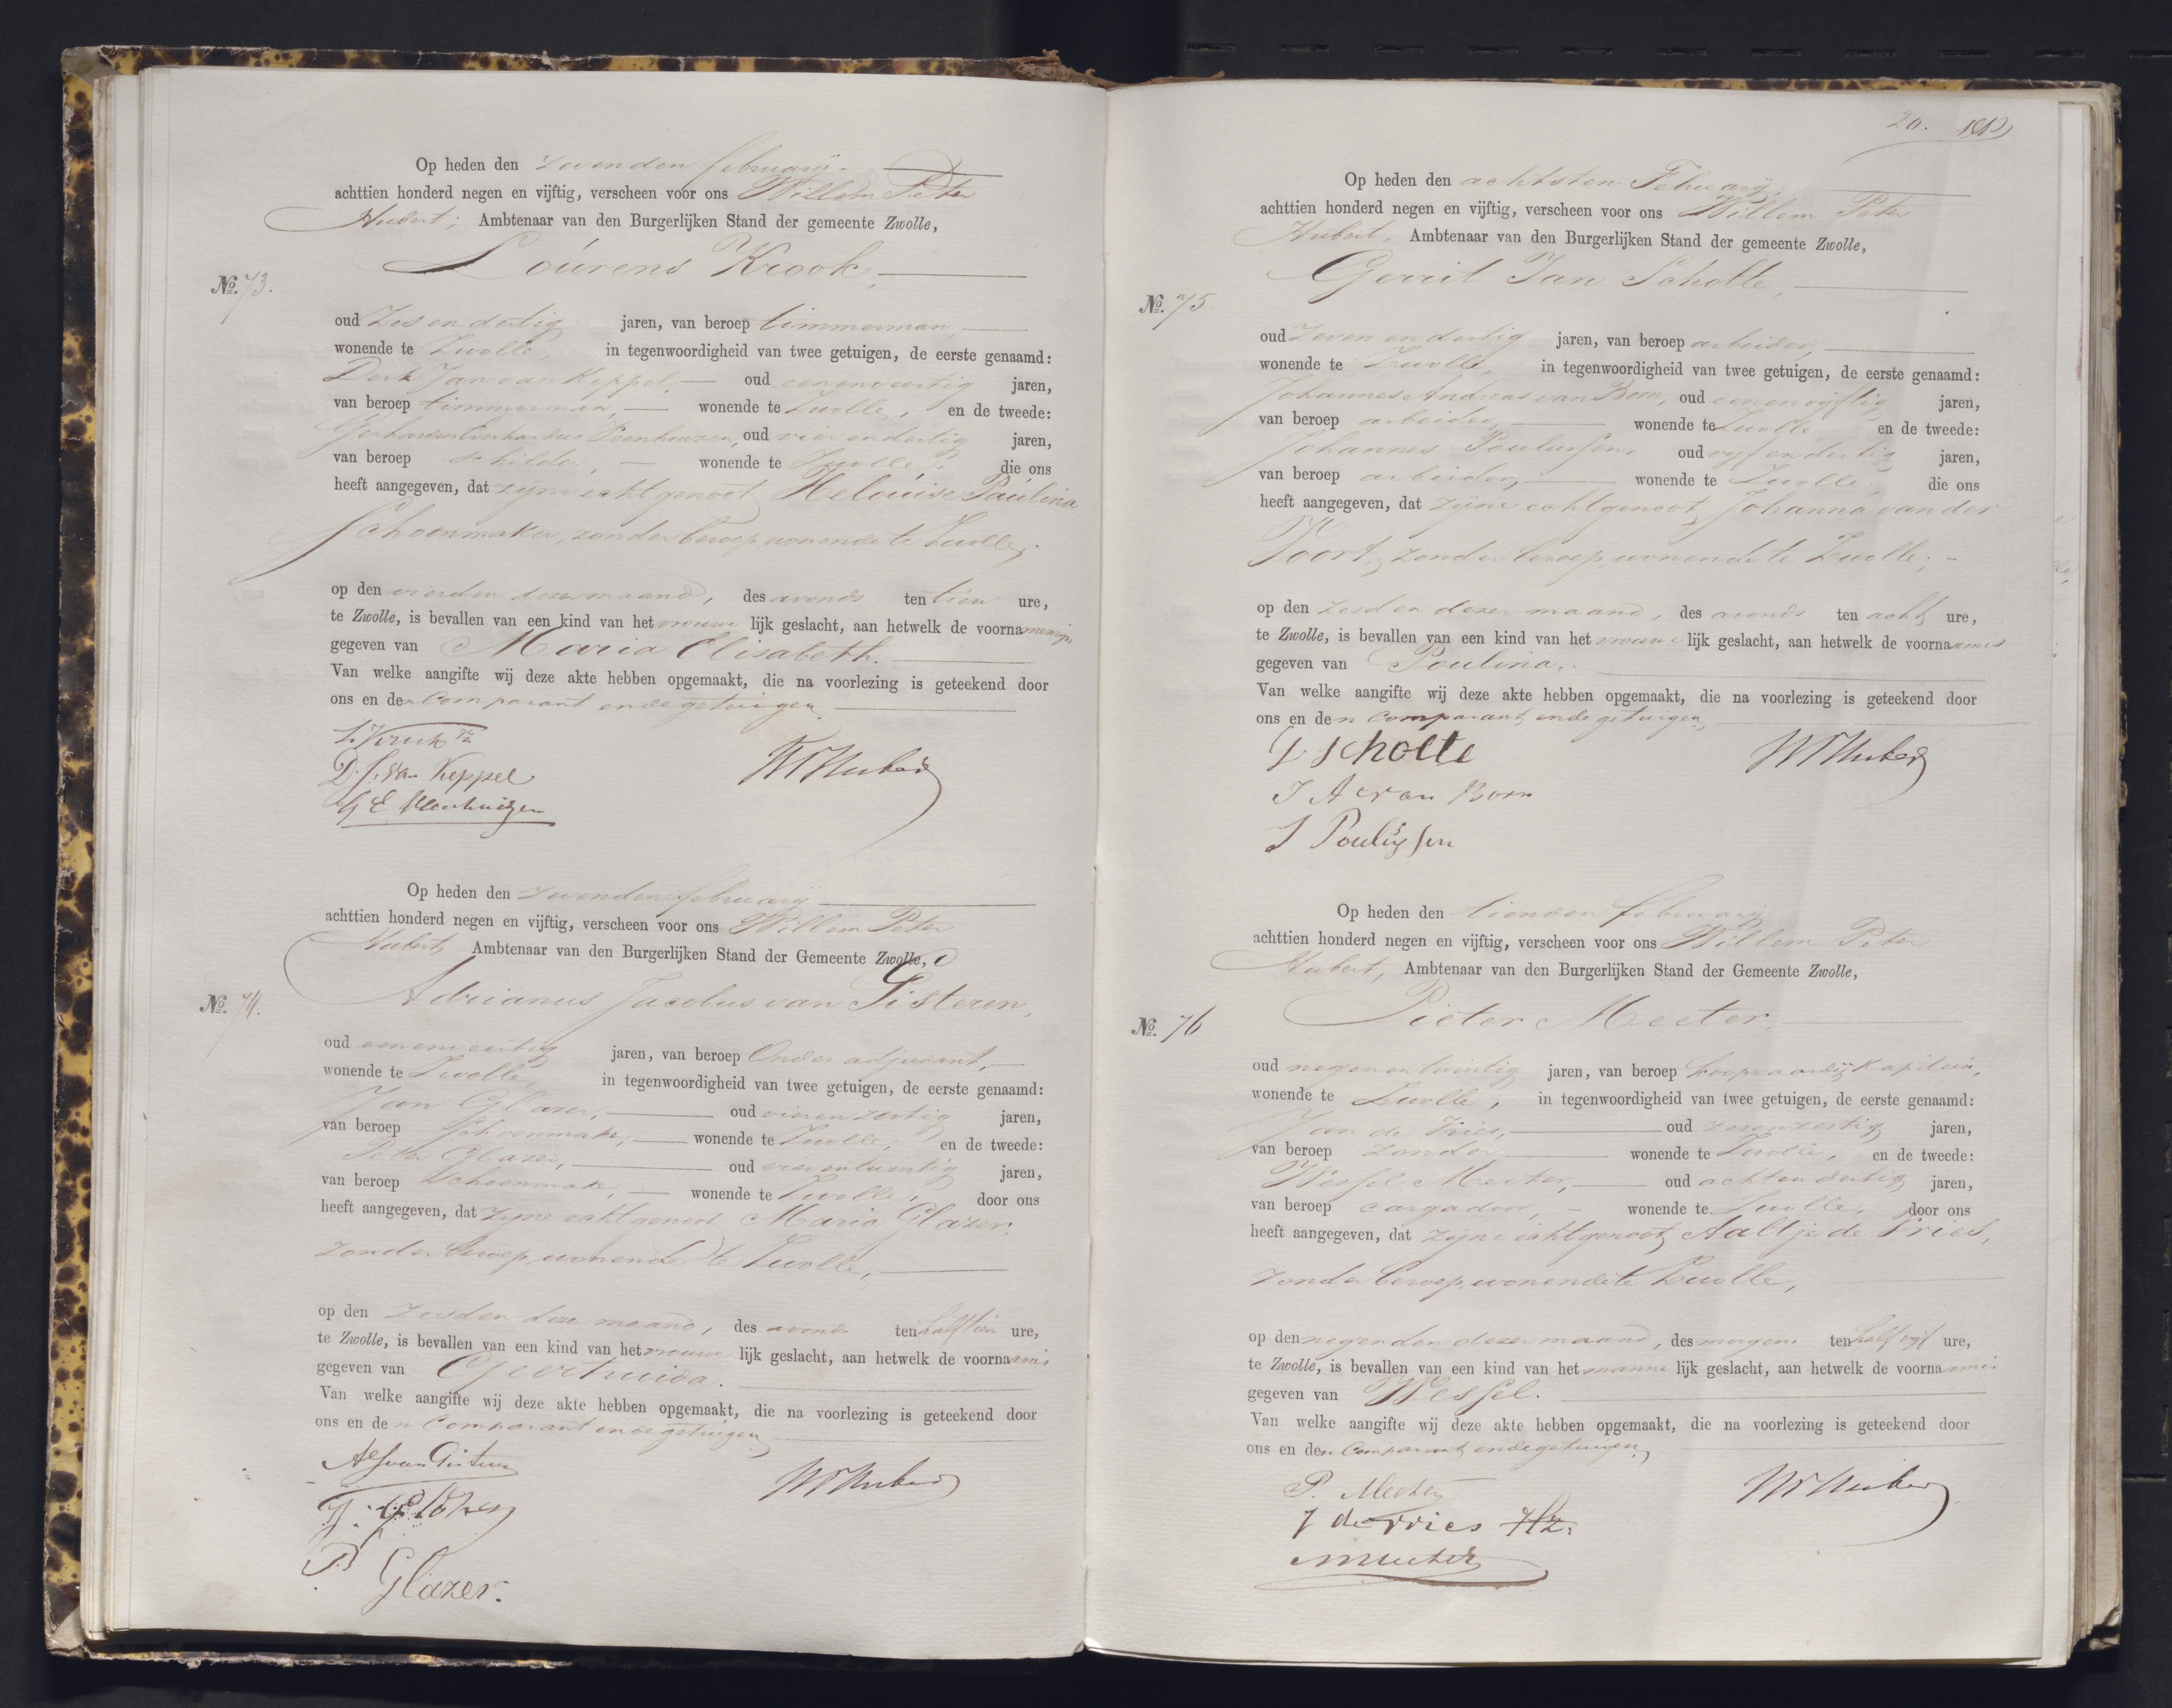 Op heden den zevenden februarij
achttien honderd negen en vijftig, verscheen voor ons Willem Peter
Hubert, Ambtenaar van den Burgerlijken Stand der gemeente Zwolle,
Lourens Krook,
No. 73.
oud Zes en dertig jaren, van beroep timmerman,
wonende te Zwolle, in tegenwoordigheid van twee getuigen, de eerste genaamd:
Derk Jan van Keppel, oud eenenveertig jaren,
van beroep timmerman, wonende te Zwolle, en de tweede:
Gerhardus Everhardus Veenhuizen, oud vier en dertig jaren,
van beroep schilder, wonende te Zwolle, die ons
heeft aangegeven, dat zijne echtgenoot Helouise Paulina
Schoenmaker, zonder beroep, wonende te Zwolle,
op den vierden dezer maand, des avonds ten tien ure,
te Zwolle, is bevallen van een kind van het vrouwelijk geslacht, aan hetwelk de voornamen zijn
gegeven van Maria Elisabeth.
Van welke aangifte wij deze akte hebben opgemaakt, die na voorlezing is geteekend door
ons en den Comparant en de getuigen
D. J. van Keppel
G E Veenhuizen
WPHubert
Op heden den zevenden februarij
achttien honderd negen en vijftig, verscheen voor ons Willem Peter
Hubert, Ambtenaar van den Burgerlijken Stand der Gemeente Zwolle,
Adrianus Jacobus van Gisteren,
No. 74.
oud eenenveertig jaren, van beroep Onder adjudant,
wonende te Zwolle, in tegenwoordigheid van twee getuigen, de eerste genaamd:
Jan Glazer, oud vierenzestig jaren,
van beroep Schoenmaker, wonende te Zwolle, en de tweede:
Peter Glazer, oud vierentwintig jaren,
van beroep Schoenmaker, wonende te Zwolle, door ons
heeft aangegeven, dat zijne echtgenoot Maria Glazer,
zonder beroep, wonende te Zwolle,
op den zesden dezer maand, des avonds ten half tien ure,
te Zwolle, is bevallen van een kind van het vrouwelijk geslacht, aan hetwelk de voornaam is
gegeven van Geertruida.
Van welke aangifte wij deze akte hebben opgemaakt, die na voorlezing is geteekend door
ons en den Comparant en de getuigen
AJ van Gisteren
J. Glazer
P Glazer.
WPHubert
20.
Op heden den achtsten Februarij
achttien honderd negen en vijftig, verscheen voor ons Willem Peter
Hubert, Ambtenaar van den Burgerlijken Stand der gemeente Zwolle,
Gerrit Jan Scholte,
No. 75
oud Zeven en dertig jaren, van beroep arbeider,
wonende te Zwolle, in tegenwoordigheid van twee getuigen, de eerste genaamd:
Johannes Andreas van Born, oud eenenvijftig jaren,
van beroep arbeider, wonende te Zwolle en de tweede:
Johannes Poulussen, oud vijf en dertig jaren,
van beroep arbeider, wonende te Zwolle, die ons
heeft aangegeven, dat zijne echtgenoot Johanna van der
Voort, zonder beroep, wonende te Zwolle,
op den zesden dezer maand, des avonds ten acht ure,
te Zwolle, is bevallen van een kind van het vrouwelijk geslacht, aan hetwelk de voornaam is
gegeven van Poulina.
Van welke aangifte wij deze akte hebben opgemaakt, die na voorlezing is geteekend door
ons en den Comparant en de getuigen
G J scholte
J A van Born
J Poulussen
WPHubert
Op heden den tienden februarij
achttien honderd negen en vijftig, verscheen voor ons Willem Peter
Hubert, Ambtenaar van den Burgerlijken Stand der Gemeente Zwolle,
Pieter Meeter,
No. 76
oud negen en twintig jaren, van beroep koopvaardij kapitein,
wonende te Zwolle, in tegenwoordigheid van twee getuigen, de eerste genaamd:
Jan de Vries, oud zesenzestig jaren,
van beroep zonder wonende te Zwolle, en de tweede:
Wessel Meeter, oud acht en dertig jaren,
van beroep cargadoor, wonende te Zwolle, door ons
heeft aangegeven, dat zijne echtgenoot Aaltje de Vries,
zonder beroep, wonende te Zwolle,
op den negenden dezer maand, des morgens ten half vijf ure,
te Zwolle, is bevallen van een kind van het mannelijk geslacht, aan hetwelk de voornaam is
gegeven van Wessel.
Van welke aangifte wij deze akte hebben opgemaakt, die na voorlezing is geteekend door
ons en den Comparant en de getuigen
P. Meeter
J de Vries Hz.
WPHubert